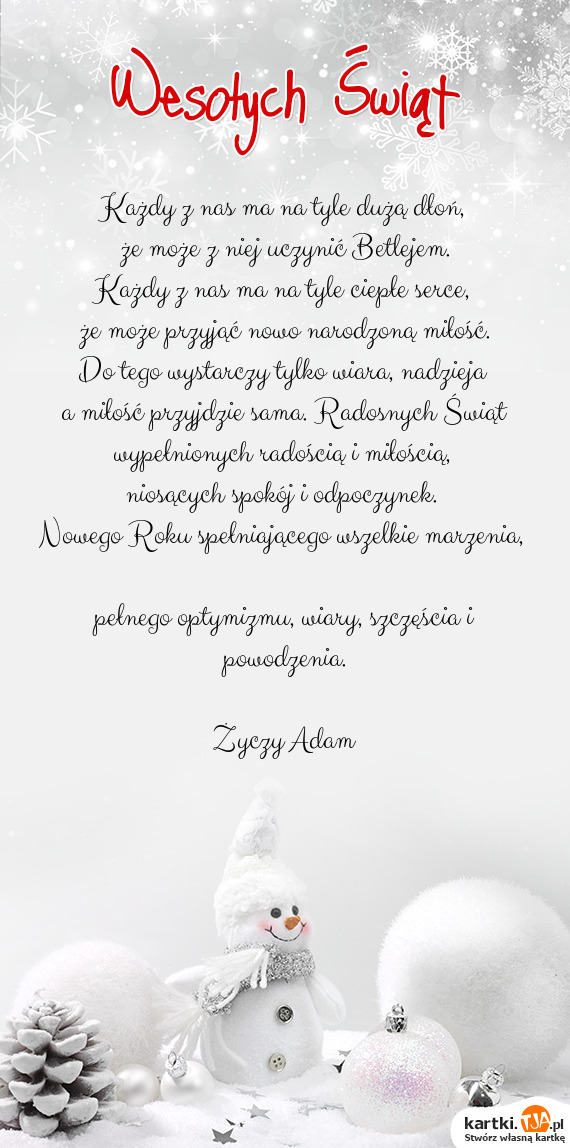 Wesołych Świąt
Każdy z nas ma na tyle dużą dłoń,
że może z niej uczynić Betlejem.
Każdy z nas ma na tyle ciepłe serce,
że może przyjąć nowo narodzoną miłość.
Do tego wystarczy tylko wiara, nadzieja
a miłość przyjdzie sama. Radosnych Świąt
wypełnionych radością i miłością,
niosących spokój i odpoczynek.
Nowego Roku spełniającego wszelkie marzenia,
pełnego optymizmu, wiary, szczęścia i
powodzenia.
Życzy Adam
kartki.TJA.pl
Stwórz własną kartkę